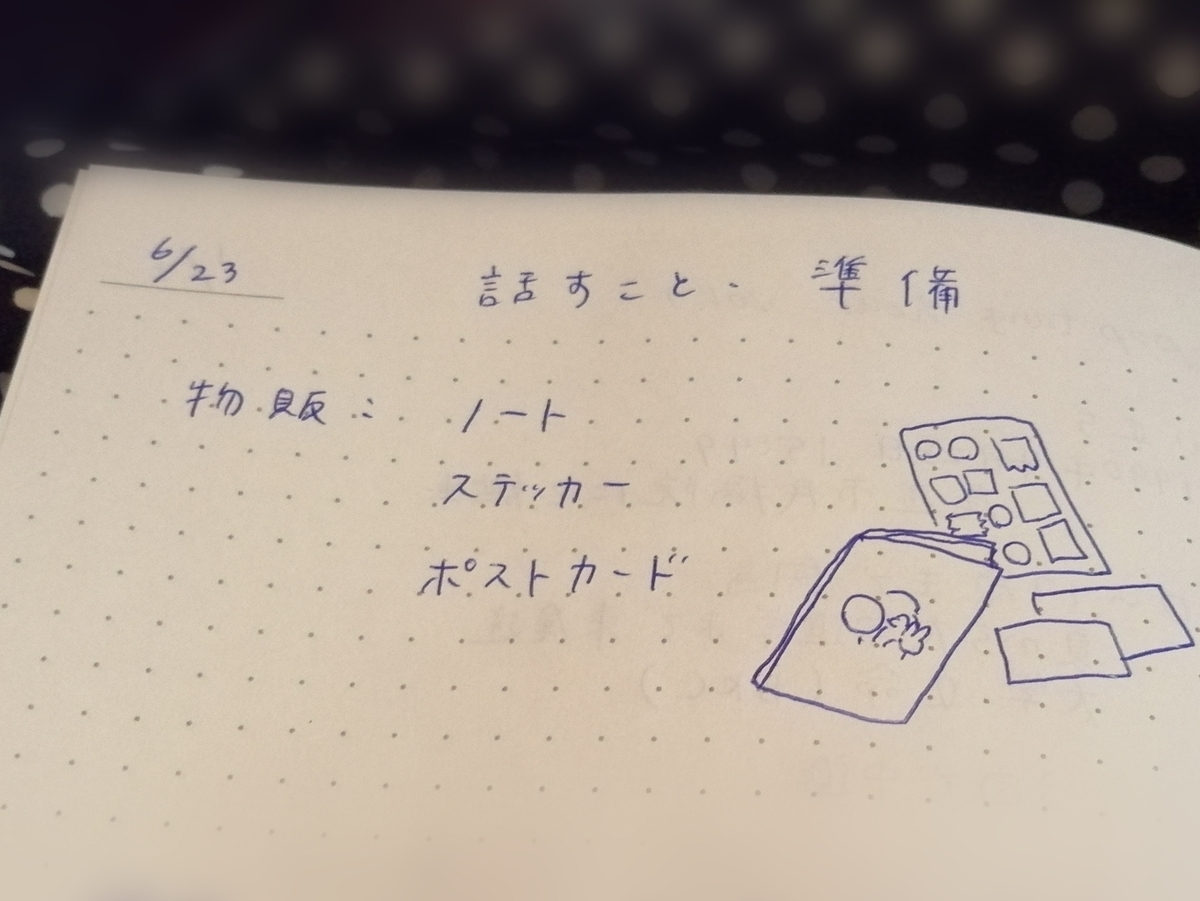 6/23
話すこと・準備
物販: ノート
ステッカー
ポストカード